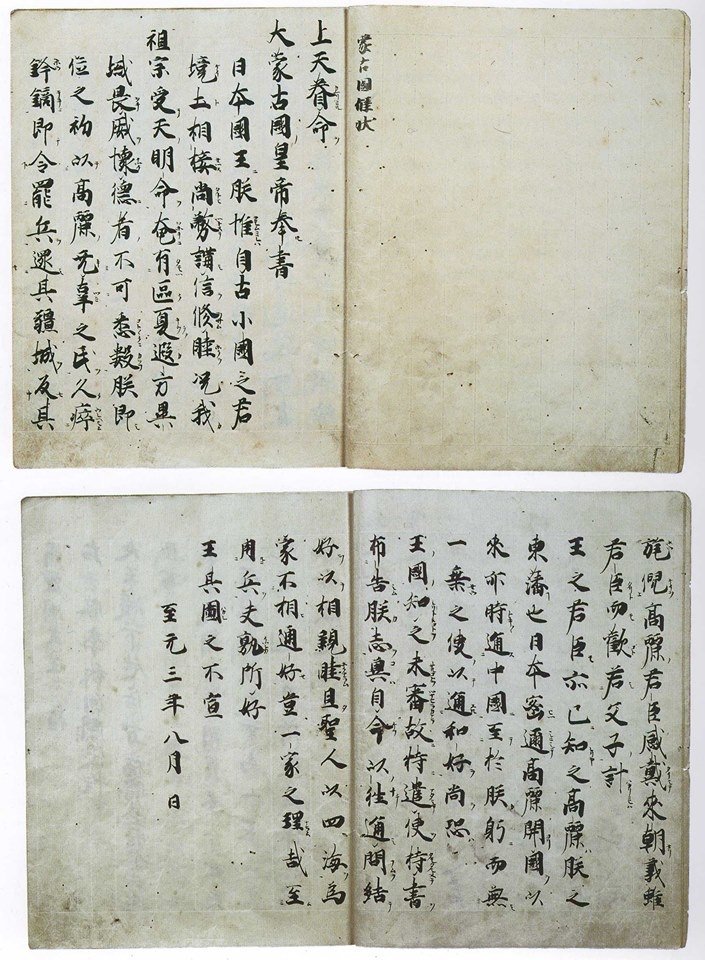 蒙古國牒状
上天眷命
大蒙古國皇帝奉書
日本國王朕惟自古小國之君
境土相接尚務講信修睦況我
祖宗受天明命奄有區夏遐方異
域畏威懐德者不可悉數朕即
位之初以高麗无辜之民久瘁
鋒鏑即令罷兵還其疆城反其
旄倪高麗君臣感戴來朝義雖
君臣而歡若父子計
王之君臣亦已知之高麗朕之
東藩也日本密邇高麗開國以
來亦時通中國至於朕躬而無
一乗之使以通和好尚恐
王國知之未審故特遣使持書
布告朕志冀自今以往通問結
好以相親睦且聖人以四海為
家不相通好豈一家之理哉至
用兵夫孰所好
王其圖之不宣
至元三年八月日